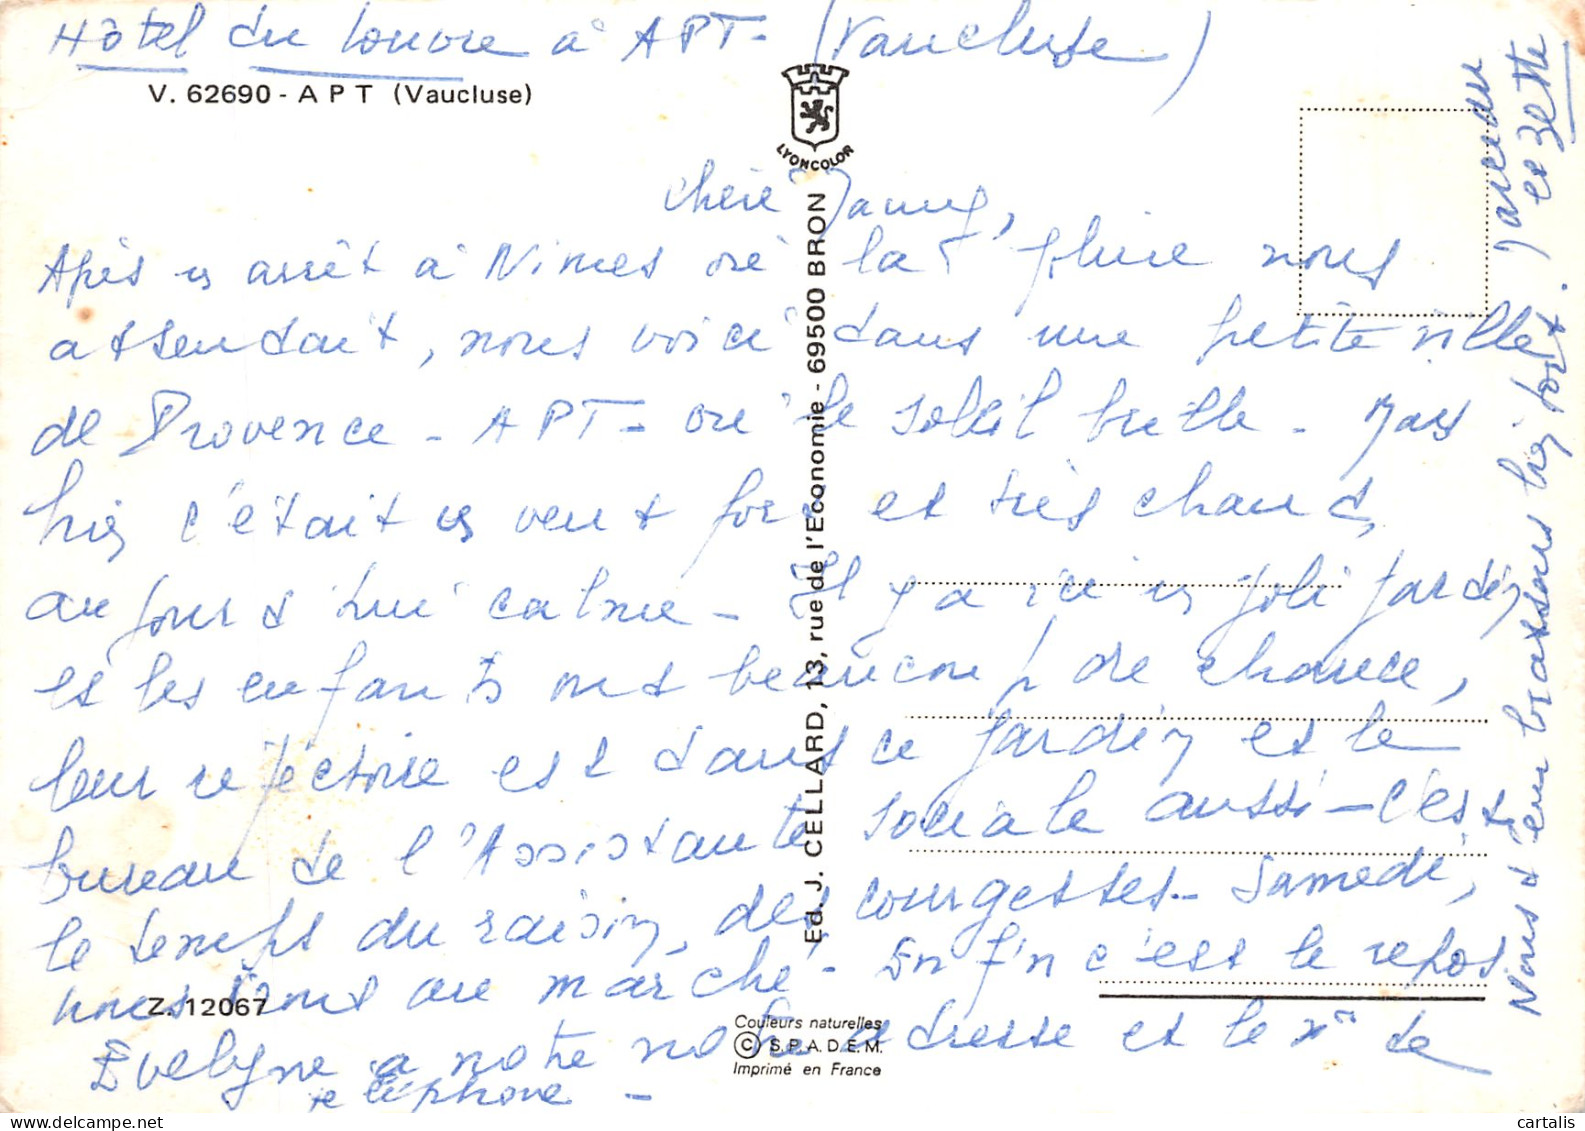 Hôtel du Louvre à APT - (Vaucluse)
V. 62690 - APT (Vaucluse)
LYONCOLOR
chère Jamy,
Après un arrêt à Nimes où la pluie nous
attendait, nous voici dans une petite ville
de Provence - APT - où le soleil brille - Mais
hier c'était un vent fort et très chaud,
aujourd'hui calme - Il y a ici un joli jardin
et les enfants ont beaucoup de chance,
leur réfectoire est dans ce jardin et le
bureau de l'Assistante sociale aussi - C'est
le temps du raisin, des courgettes - Samedi,
nous irons au marché - Enfin c'est le repos
Evelyne a notre adresse et le n° de
téléphone -
Nous t'embrassons bien fort.
et Zette
Ed. J. CELLARD, 13, rue de l'Economie - 69500 BRON
Z. 12067
Couleurs naturelles
© S.P.A.D.E.M.
Imprimé en France
cartalis